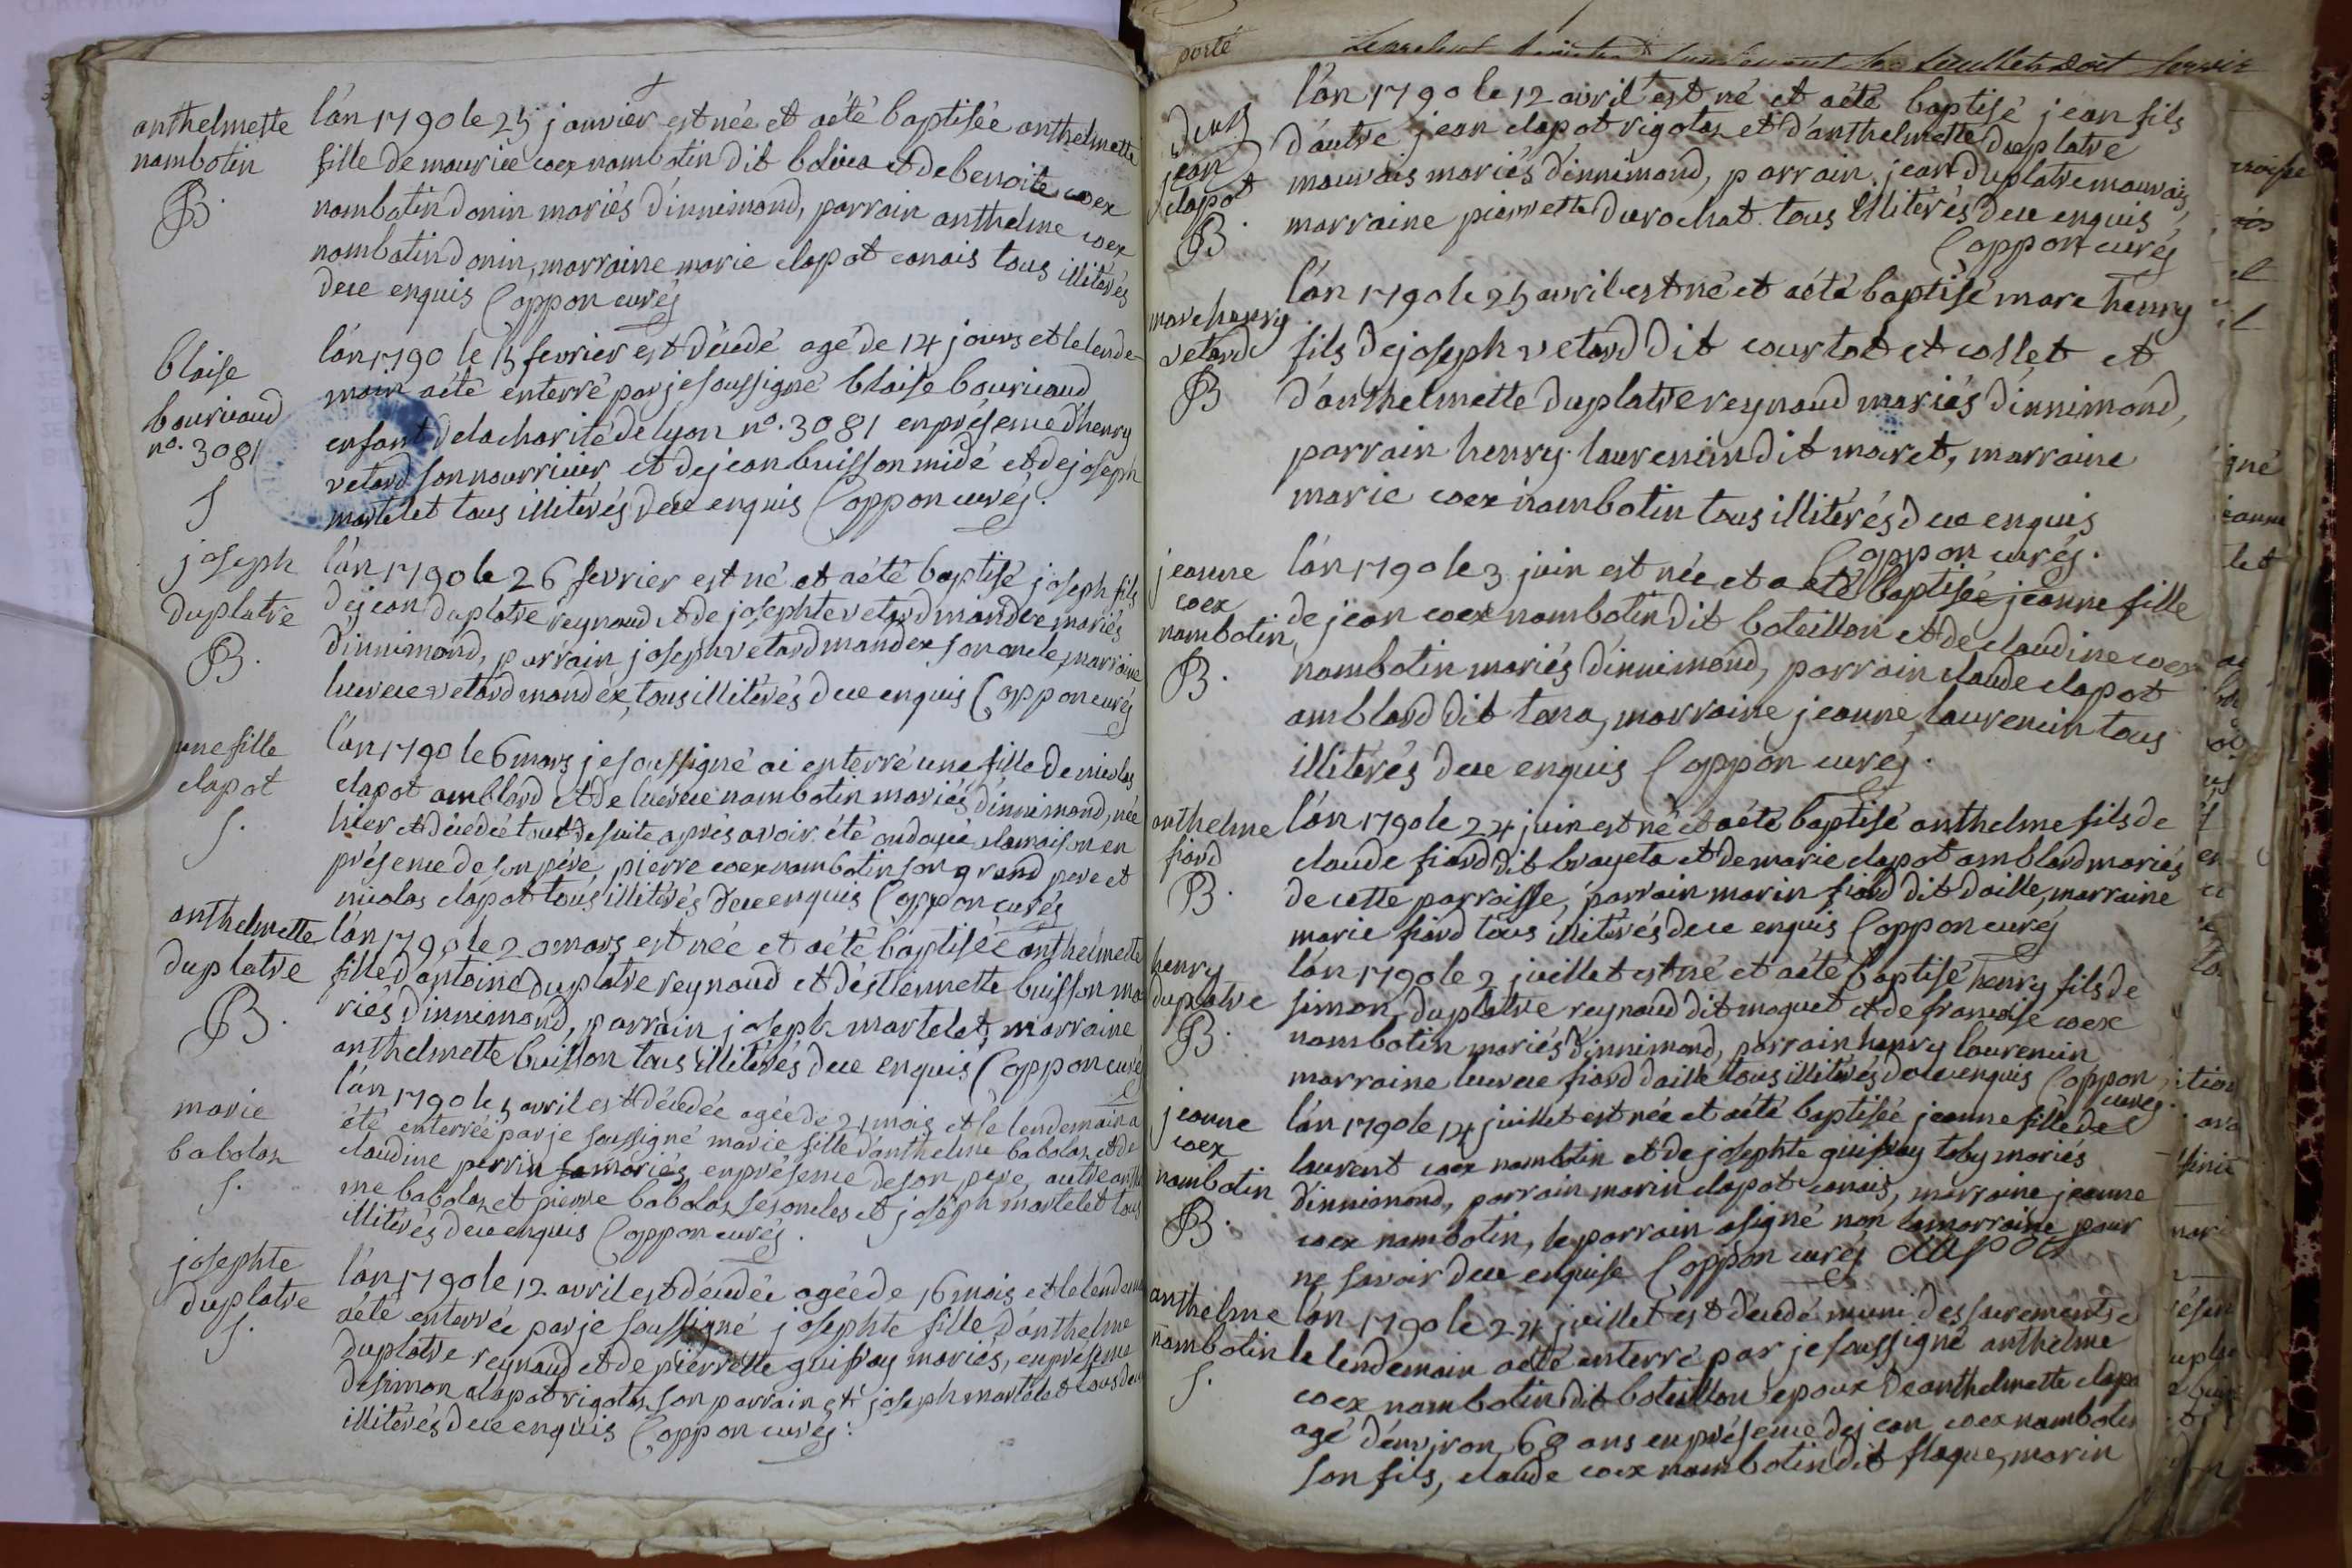 anthelmette
nambotin
B.
l'an 1790 le 25 janvier est née et a été baptisée anthelmette
fille de maurice coex nambotin dit boliva et de benoite coex
nambotin donin mariés d'innimond, parrain anthelme coex
nambotin donin, marraine marie clapot canais tous illitérés
de ce enquis Coppon curéj
blaise
bouricaud
no. 3081
S
l'an 1790 le 15 fevrier est décedé agé de 14 jours et le lende-
main a été enterré par je soussigné blaise bouricaud
enfant de la charité de lyon no. 3081 en présence d'henry
vetard son nourricier et de jean buisson midé et de joseph
martelet tous illitérés de ce enquis Coppon curéj.
joseph
duplatre
B.
l'an 1790 le 26 fevrier est né et a été baptisé joseph fils
de jean duplatre reynaud et de josephte vetard mandex mariés
d'innimond, parrain joseph vetard mandex son oncle, marraine
lucrece vetard mandex, tous illitérés de ce enquis Coppon curéj
une fille
clapot
S.
l'an 1790 le 6 mars je soussigné ai enterré une fille de nicolas
clapot amblard et de lucrece nambotin mariés d'innimond, née
hier et décedée tout de suite après avoir été ondoyée a la maison en
présence de son père, pierre coex nambotin son grand pere et
nicolas clapot tous illitérés de ce enquis Coppon curéj
anthelmette
duplatre
B.
l'an 1790 le 20 mars est née et a été baptisée anthelmette
fille d'antoine duplatre reynaud et d'estiennette buisson ma
riés d'innimond, parrain joseph martelet, marraine
anthelmette buisson tous illitérés de ce enquis Coppon curéj
marie
babolax
S.
l'an 1790 le 5 avril est décedée agée de 21 mois et le lendemain a
été enterrée par je soussigné marie fille d'anthelme babolax et de
claudine perrin mariés en présence de son pere, autre anthel
me babolax et pierre babolax ses oncles et joseph martelet tous
illitérés de ce enquis Coppon curéj.
josephte
duplatre
S.
l'an 1790 le 12 avril est décedée agée de 16 mois et le lendemain
a été enterrée par je soussigné josephte fille d'anthelme
duplatre reynaud et de pierrette guifray mariés, en présence
de simon clapot rigolax son parrain et joseph martelet tous deux
illitérés de ce enquis Coppon curéj.
porté
feuillets doit servir
jean
clapot
B.
l'an 1790 le 12 avril est né et a été baptisé jean fils
d'autre jean clapot rigolax et d'anthelmette duplatre
mauvais mariés d'innimond, parrain jean duplatre mauvais,
marraine pierrette durochat tous illitérés de ce enquis
Coppon curéj
marc henry
vetard
B
l'an 1790 le 25 avril est né et a été baptisé marc henry
fils de joseph vetard dit courtot et collet et
d'anthelmette duplatre reynaud mariés d'innimond,
parrain henry laurencin dit maret, marraine
marie coex nambotin tous illitérés de ce enquis
Coppon curéj.
jeanne
coex
nambotin
B.
l'an 1790 le 3 juin est née et a été baptisée jeanne fille
de jean coex nambotin dit boteillon et de claudine coex
nambotin mariés d'innimond, parrain claude clapot
amblard dit tona, marraine jeanne laurencin tous
illitérés de ce enquis Coppon curéj.
anthelme
fiard
B.
l'an 1790 le 24 juin est né et a été baptisé anthelme fils de
claude fiard dit brayeta et de marie clapot amblard mariés
de cette parroisse, parrain marin fiard dit daille, marraine
marie fiard tous illitérés de ce enquis Coppon curéj
henry
duplatre
B.
l'an 1790 le 2 juillet est né et a été baptisé henry fils de
simon duplatre reynaud dit maguet et de francoise coex
nambotin mariés d'innimond, parrain henry laurencin
marraine lucrece fiard daille tous illitérés de ce enquis Coppon
curéj.
jeanne
coex
nambotin
B.
l'an 1790 le 14 juillet est née et a été baptisée jeanne fille de
laurent coex nambotin et de josephte guifray toby mariés
d'innimond, parrain marin clapot canais, marraine jeanne
coex nambotin, le parrain a signé non la marraine pour
ne savoir de ce enquise Coppon curéj clapot
anthelme
nambotin
S.
l'an 1790 le 24 juillet est décedé muni des sacrements e
le lendemain a été enterré par je soussigné anthelme
coex nambotin dit boteillon epoux de anthelmette clapo
agé d'environ 68 ans en présence de jean coex nambotin
son fils, claude coex nambotin dit flaque, marin